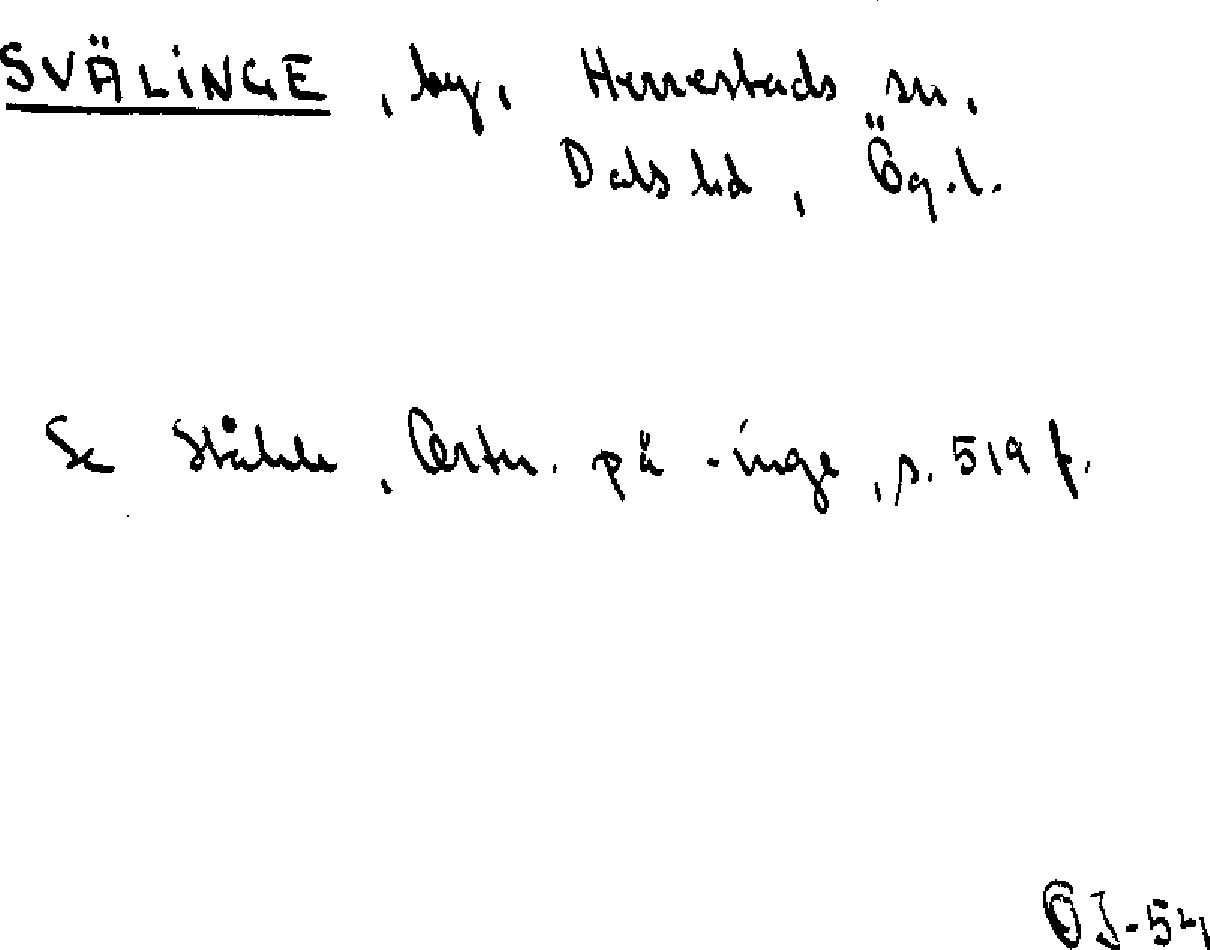 SVÄLINGE, by, Herrestads sn,
Dals hd, Ög.l.
Se Ståhle, Ortn. på -inge, s. 519 f.
OJ-54